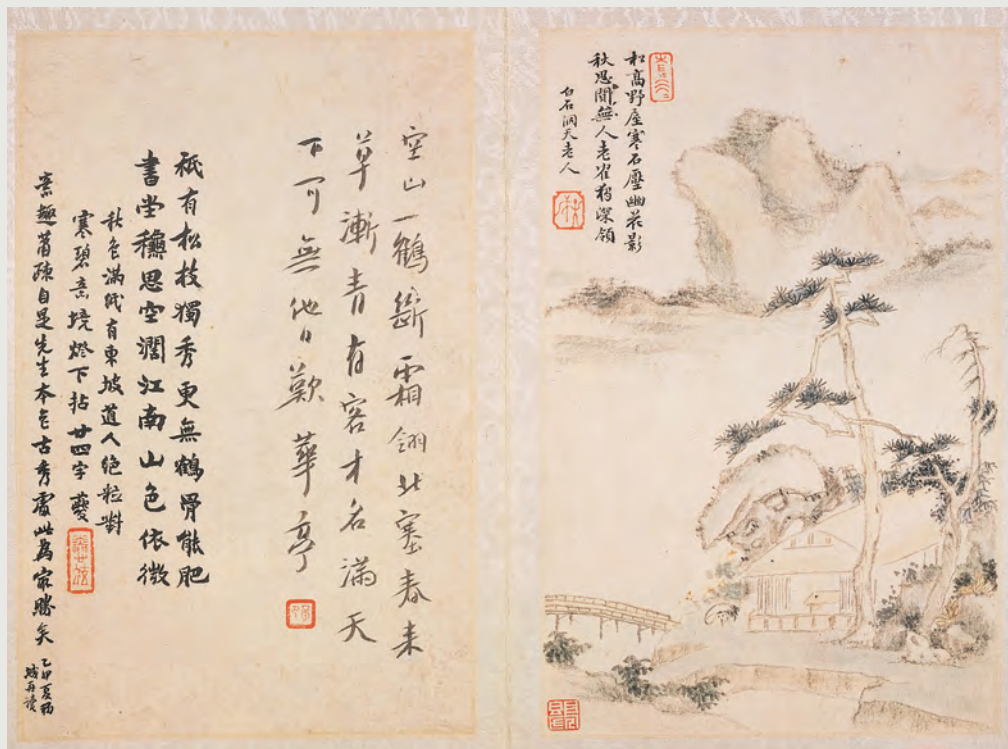 松高野屋寒石壓幽花影
秋思閒無人老崔獨深領
白石洞天老人
空山一鶴斷霜翎北塞春來
草漸青有客才名滿天
下可無他日歎華亭
秪有松枝獨秀更無鶴骨能肥
書堂穩思空濶江南山色依微
秋色滿紙有東坡道人絕粒對
寒碧意境燈下拈廿四字
意趣蕭疎自是先生本色古秀處此為最勝矣
乙
夏
再讀